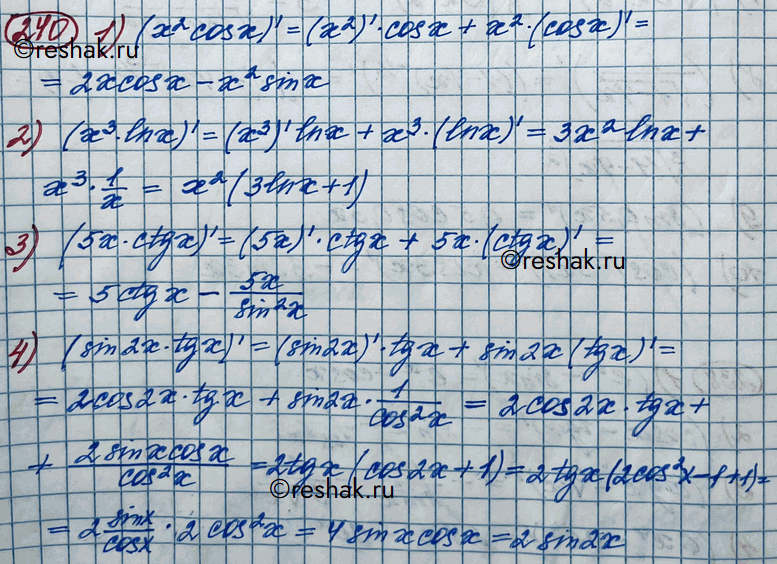 240. 1) (x² cosx)' = (x²)'·cosx + x²·(cosx)' =
©reshak.ru
= 2xcosx − x² sinx
2) (x³·lnx)' = (x³)' lnx + x³·(lnx)' = 3x² lnx +
x³·1/x = x²(3lnx+1)
3) (5x·ctgx)' = (5x)'·ctgx + 5x·(ctgx)' =
©reshak.ru
= 5ctgx − 5x/sin²x
4) (sin2x·tgx)' = (sin2x)'·tgx + sin2x(tgx)' =
= 2cos2x·tgx + sin2x·1/cos²x = 2cos2x·tgx +
+ 2sinxcosx/cos²x = 2tgx(cos2x+1) = 2tgx(2cos²x−1+1) =
©reshak.ru
= 2 sinx/cosx · 2cos²x = 4sinxcosx = 2sin2x